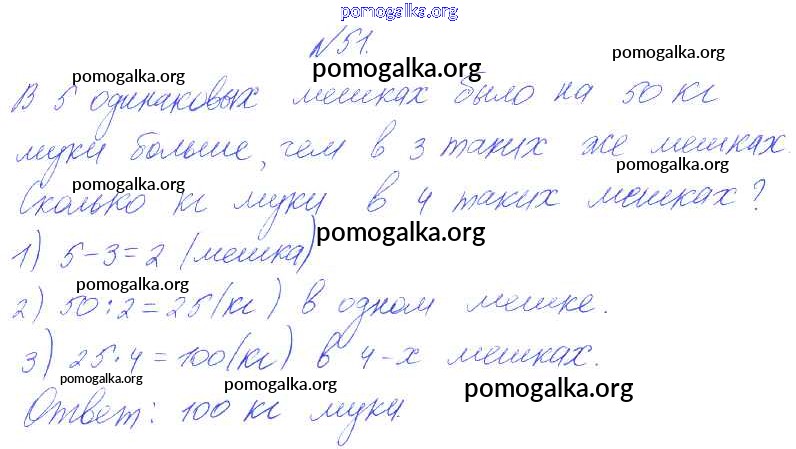 pomogalka.org
№51.
pomogalka.org
pomogalka.org
pomogalka.org
В 5 одинаковых мешках было на 50 кг
муки больше, чем в 3 таких же мешках.
pomogalka.org
pomogalka.org
Сколько кг муки в 4 таких мешках?
pomogalka.org
1) 5-3=2 (мешка)
pomogalka.org
2) 50:2=25(кг) в одном мешке.
3) 25·4=100(кг) в 4-х мешках.
pomogalka.org
pomogalka.org
pomogalka.org
Ответ: 100 кг муки.